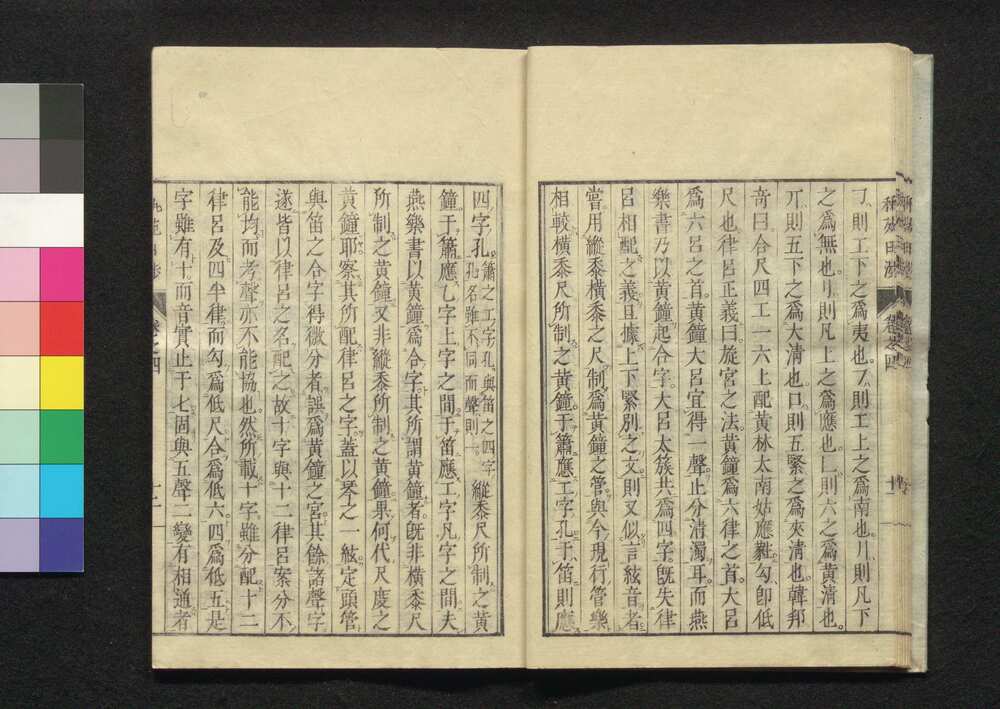 了則工下之爲夷也フ則工上之爲南也リ則凡下
之爲無也リ則凡上之爲應也乚則六之爲黃清也
丌則五下之爲大清也口則五緊之爲夾清也韓邦
奇曰合尺四工一六上配黃林太南姑應蕤勾卽低
尺也律呂正義曰旋宮之法黃鐘爲六律之首大呂
爲六呂之首黃鐘大呂宜得一聲止分清濁耳而燕
樂書乃以黃鐘起合字大呂太簇共爲四字旣失律
呂相配之義且據上下緊別之文則又似言絃音者
嘗用縱黍橫黍之尺制爲黃鐘之管與今現行管樂
相較橫黍尺所制之黃鐘于簫應工字孔于笛則應
四字孔簫之工字孔與笛之四字孔名雖不同而聲則一縱黍尺所制之黃
鐘于簫應乙字上字之間于笛應工字凡字之間夫
燕樂書以黃鐘爲合字其所謂黃鐘者旣非橫黍尺
所制之黃鐘又非縱黍所制之黃鐘果何代尺度之
黃鐘耶察其所配律呂之字蓋以琴之一絃定頭管
與笛之合字得微分者誤爲黃鐘之宮其餘諸聲字
遂皆以律呂之名配之故十字與十二律呂案分不
能均而考聲亦不能協也然所載十字雖分配十二
律呂及四半律而勾爲低尺合爲低六四爲低五是
字雖有十而音實止于七固與五聲二變有相通者